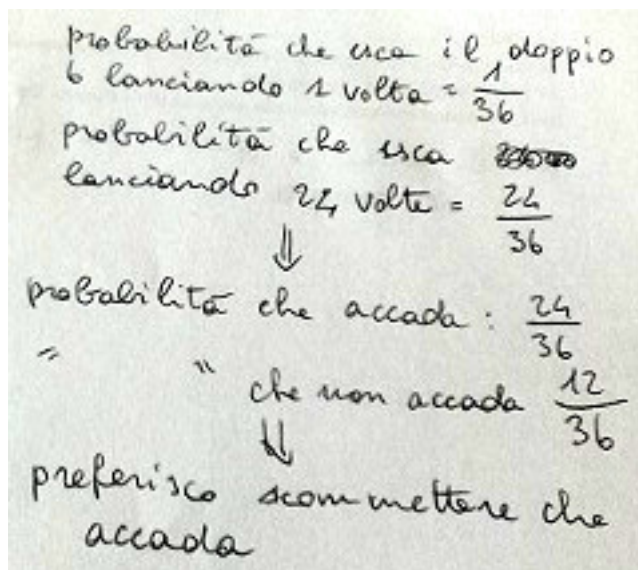 probabilità che esca il doppio
6 lanciando 1 volta = 1/36
probabilità che esca
lanciando 24 volte = 24/36
⇓
probabilità che accada : 24/36
" " che non accada 12/36
⇓
preferisco scommettere che
accada